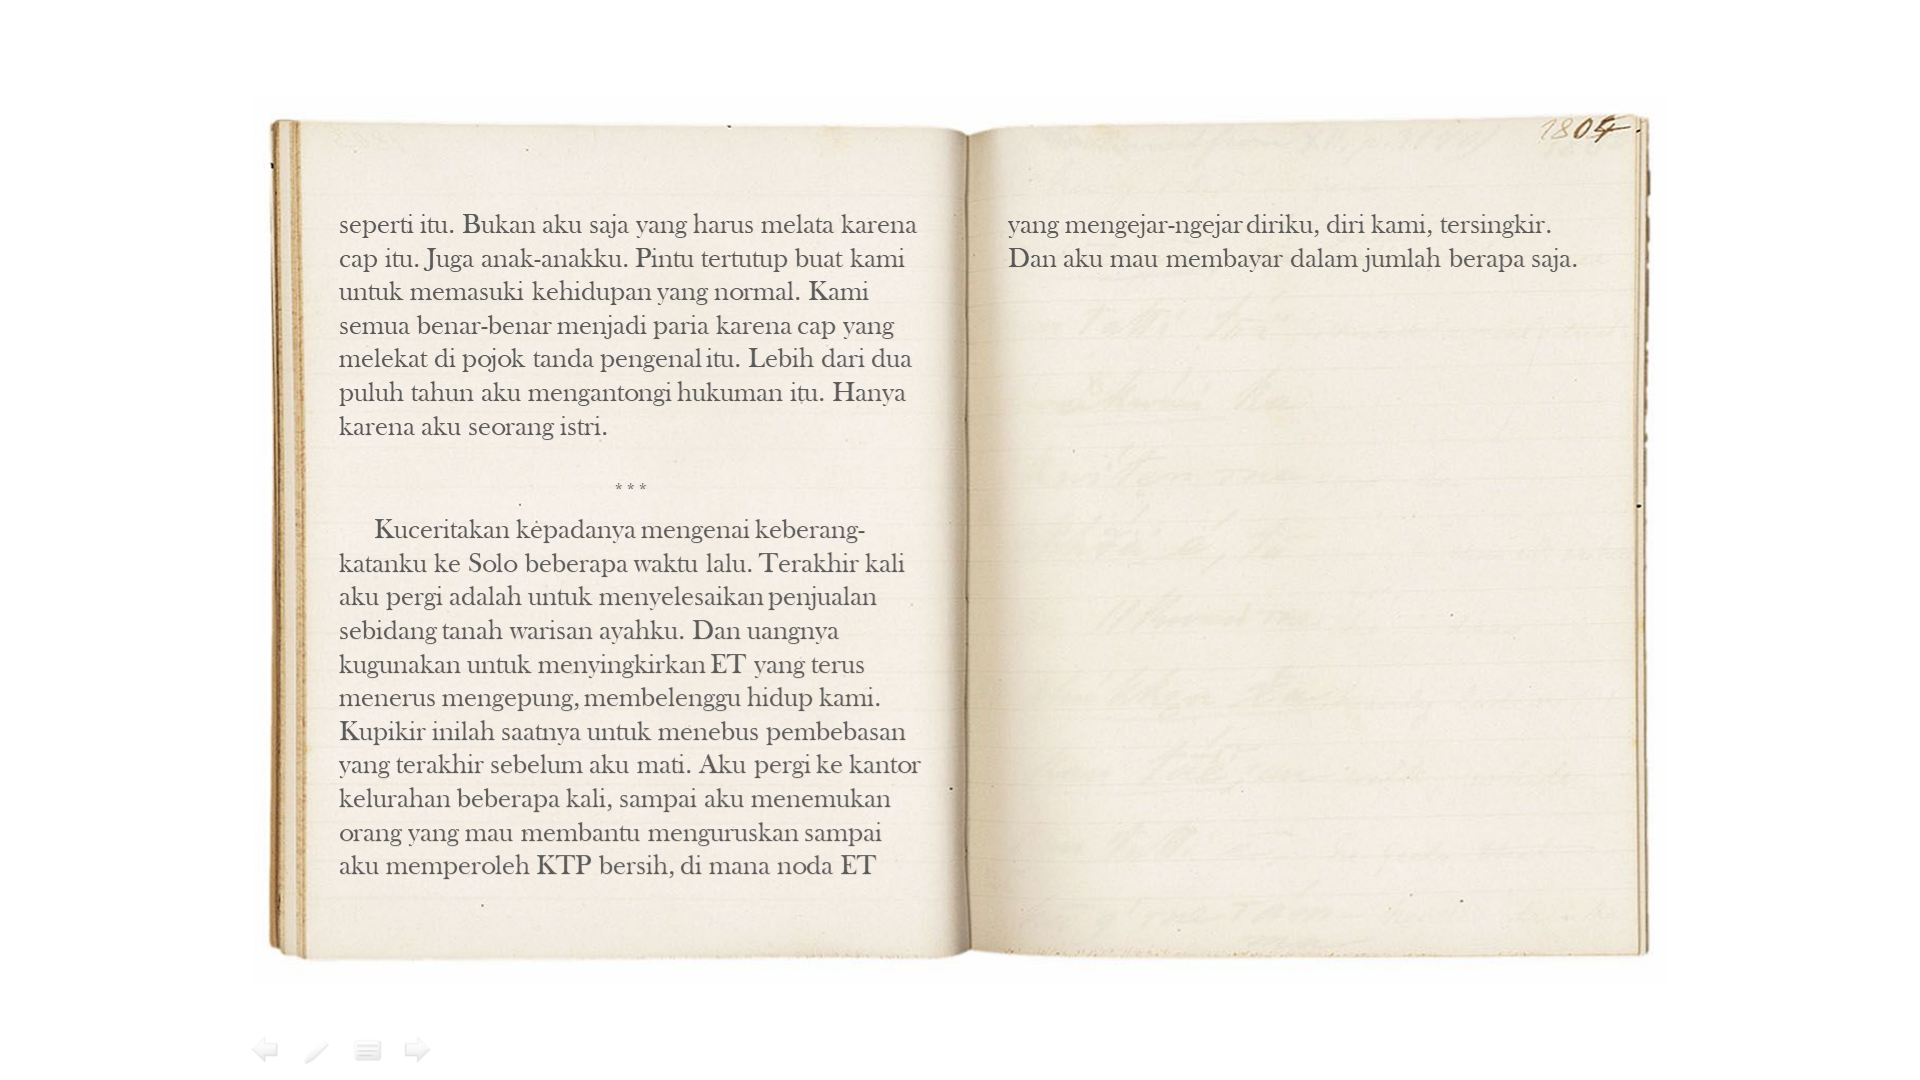 seperti itu. Bukan aku saja yang harus melata karena
cap itu. Juga anak-anakku. Pintu tertutup buat kami
untuk memasuki kehidupan yang normal. Kami
semua benar-benar menjadi paria karena cap yang
melekat di pojok tanda pengenal itu. Lebih dari dua
puluh tahun aku mengantongi hukuman itu. Hanya
karena aku seorang istri.
* * *
Kuceritakan kepadanya mengenai keberang-
katanku ke Solo beberapa waktu lalu. Terakhir kali
aku pergi adalah untuk menyelesaikan penjualan
sebidang tanah warisan ayahku. Dan uangnya
kugunakan untuk menyingkirkan ET yang terus
menerus mengepung, membelenggu hidup kami.
Kupikir inilah saatnya untuk menebus pembebasan
yang terakhir sebelum aku mati. Aku pergi ke kantor
kelurahan beberapa kali, sampai aku menemukan
orang yang mau membantu menguruskan sampai
aku memperoleh KTP bersih, di mana noda ET
1804
yang mengejar-ngejar diriku, diri kami, tersingkir.
Dan aku mau membayar dalam jumlah berapa saja.